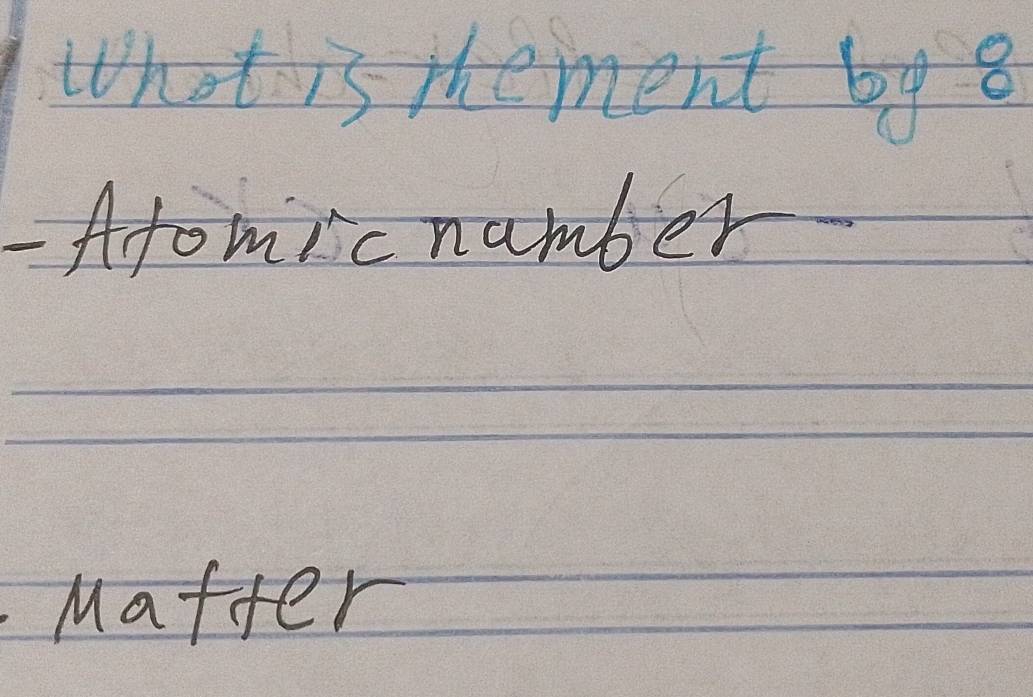 What is the ment by 8
- Atomic namber -
. Matter